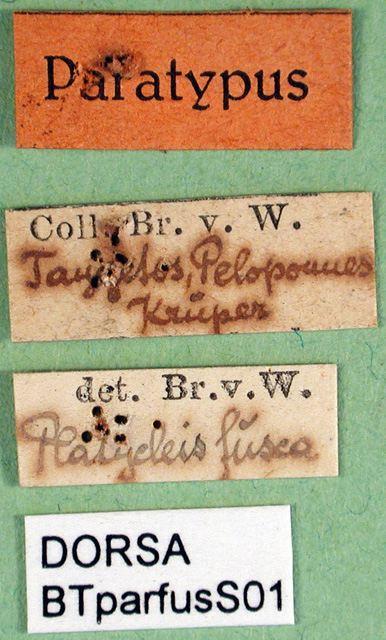 Paratypus
Coll. Br. v. W.
Taygetos, Peloponnes
Krüper
det. Br.v.W.
Platycleis fusca
DORSA
BTparfusS01